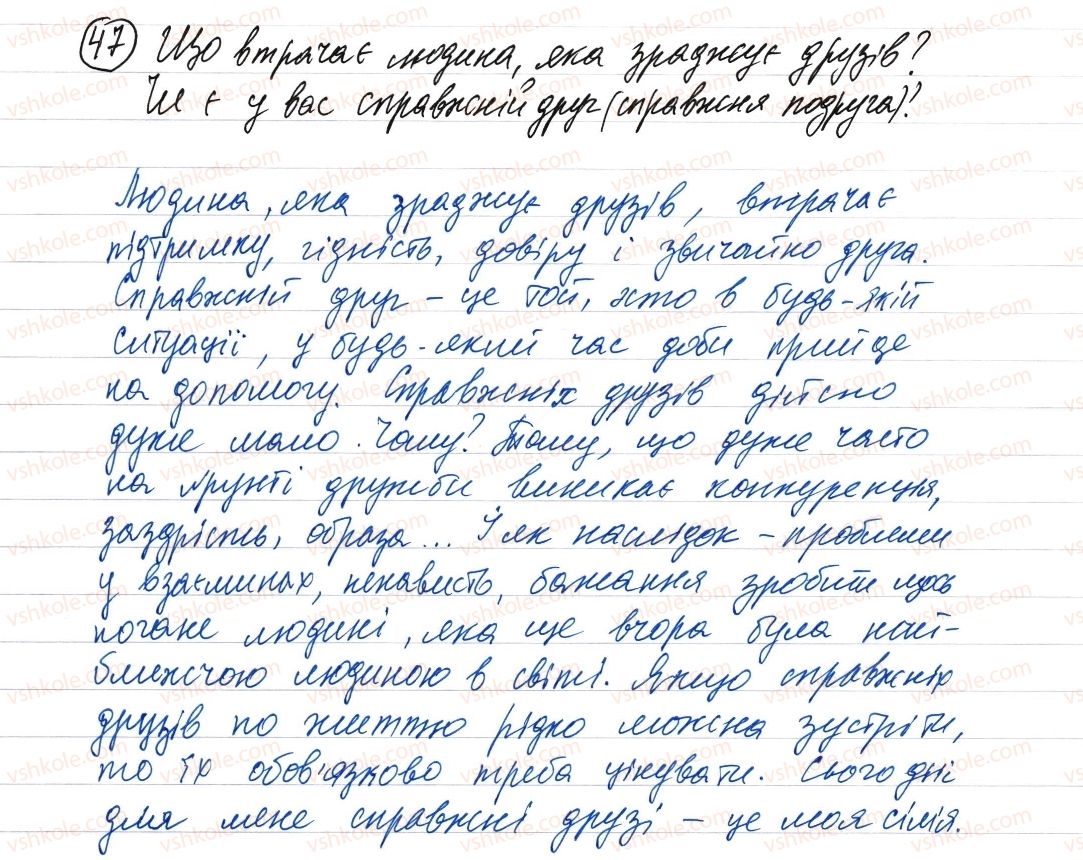 47 Що втрачає людина, яка зраджує друзів?
Чи є у вас справжній друг (справжня подруга)?
Людина, яка зраджує друзів, втрачає
підтримку, гідність, довіру і звичайно друга.
Справжній друг – це той, хто в будь-якій
ситуації, у будь-який час доби прийде
на допомогу. Справжніх друзів дійсно
дуже мало. Чому? Тому, що дуже часто
на ґрунті дружби виникає конкуренція,
заздрість, образа... І як наслідок – проблеми
у взаєминах, ненависть, бажання зробити щось
погане людині, яка ще вчора була най-
ближчою людиною в світі. Якщо справжніх
друзів по життю рідко можна зустріти,
то їх обов'язково треба цінувати. Сьогодні
для мене справжні друзі – це моя сім'я.
vshkole.com